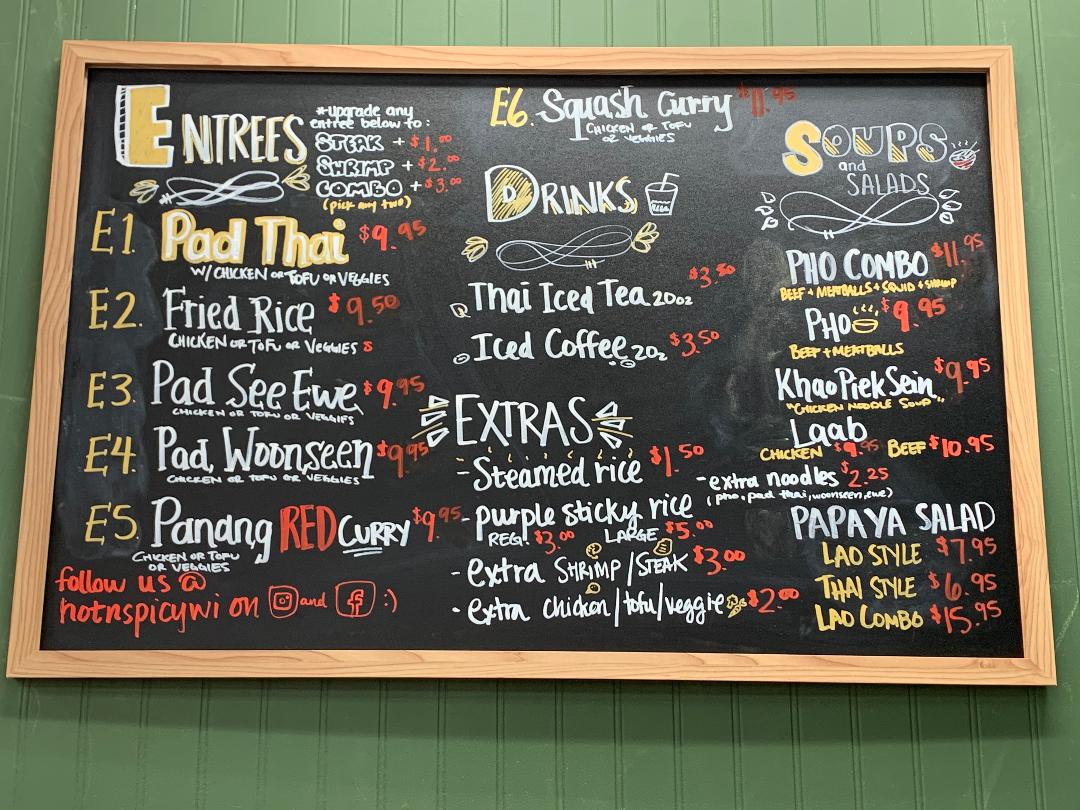 ENTREES
*upgrade any
entree below to:
STEAK + $1.00
SHRIMP + $2.00
COMBO + $3.00
(pick any two)
E1. Pad Thai $9.95
W/CHICKEN OR TOFU OR VEGGIES
E2. Fried Rice $9.50
CHICKEN OR TOFU OR VEGGIES
E3. Pad See Ewe $9.95
CHICKEN OR TOFU OR VEGGIES
E4. Pad Woonseen $9.95
CHICKEN OR TOFU OR VEGGIES
E5. Panang RED CURRY $9.95
CHICKEN OR TOFU
OR VEGGIES
follow us @
hotnspicywi on and :)
E6. Squash Curry $11.95
CHICKEN OR TOFU
OR VEGGIES
DRINKS
Thai Iced Tea 20oz $3.50
Iced Coffee 20z $3.50
EXTRAS
- Steamed rice $1.50
- purple sticky rice
REG. $3.00 LARGE $5.00
- extra SHRIMP/STEAK $3.00
- extra chicken/tofu/veggie $2.00
- extra noodles $2.25
(pho, pad thai, woonseen, ewe)
SOUPS
and
SALADS
PHO COMBO $11.95
BEEF + MEATBALLS + SQUID + SHRIMP
PHO $9.95
BEEF + MEATBALLS
Khao Piek Sein $9.95
"CHICKEN NOODLE SOUP"
Laab
CHICKEN $9.95 BEEF $10.95
PAPAYA SALAD
LAO STYLE $7.95
THAI STYLE $6.95
LAO COMBO $15.95